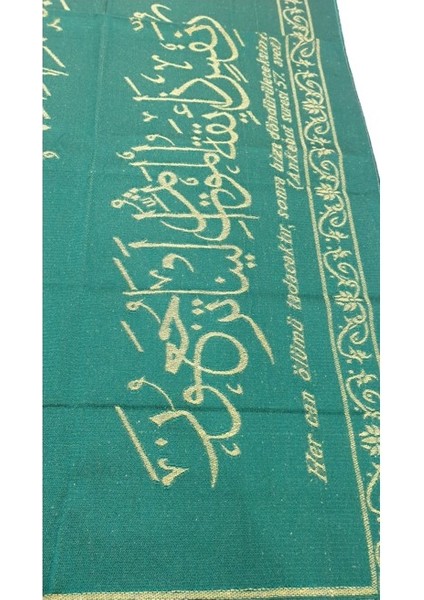 نَفْسٍ ذَائِقَةُ الْمَوْتِ ثُمَّ إِلَيْنَا تُرْجَعُونَ
Her can ölümü tadacaktır, sonra bize döndürüleceksiniz.
(Ankebut suresi 57. ayet)